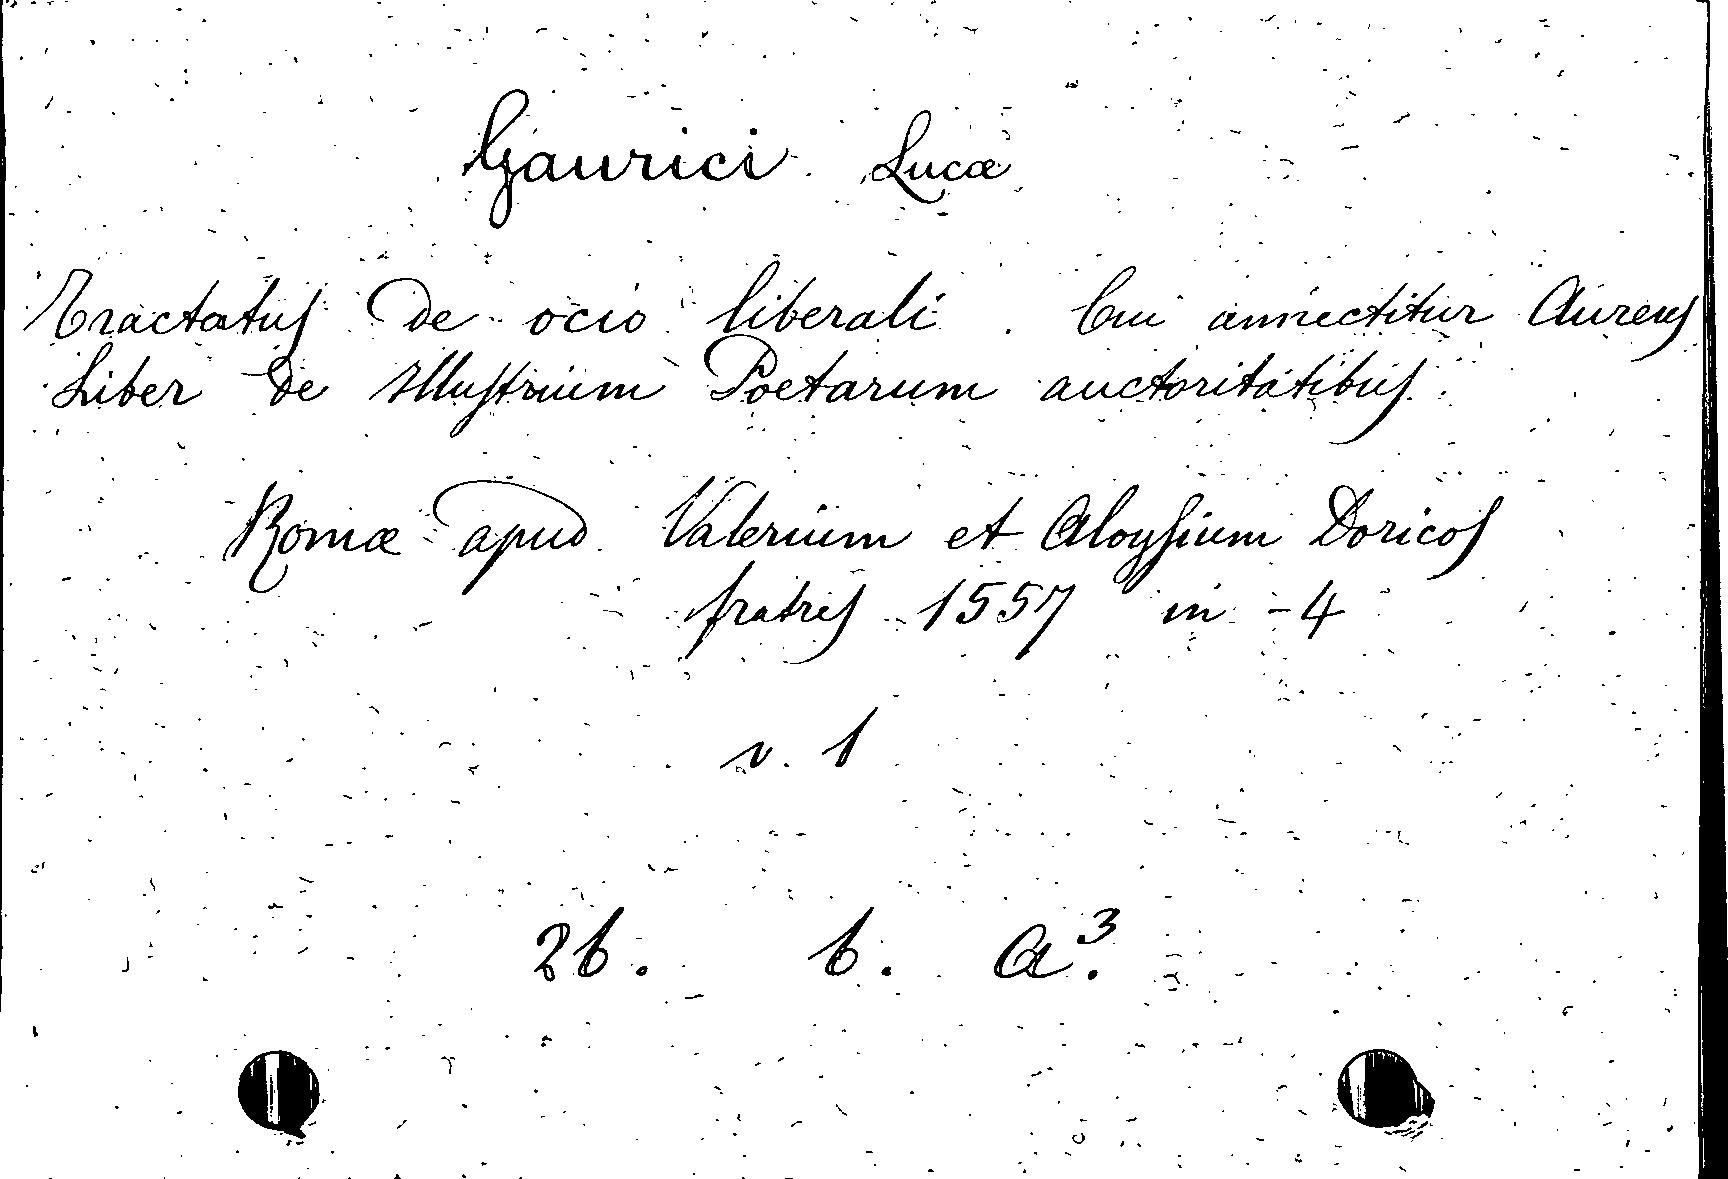 Gaurici Lucæ
Tractatus de ocio liberali. Cui annectitur Aureus
Liber de Illustrium Poetarum auctoritatibus.
Romæ apud Valerium et Aloysium Doricos
fratres 1557 in-4
v. 1
26. 6. A³.